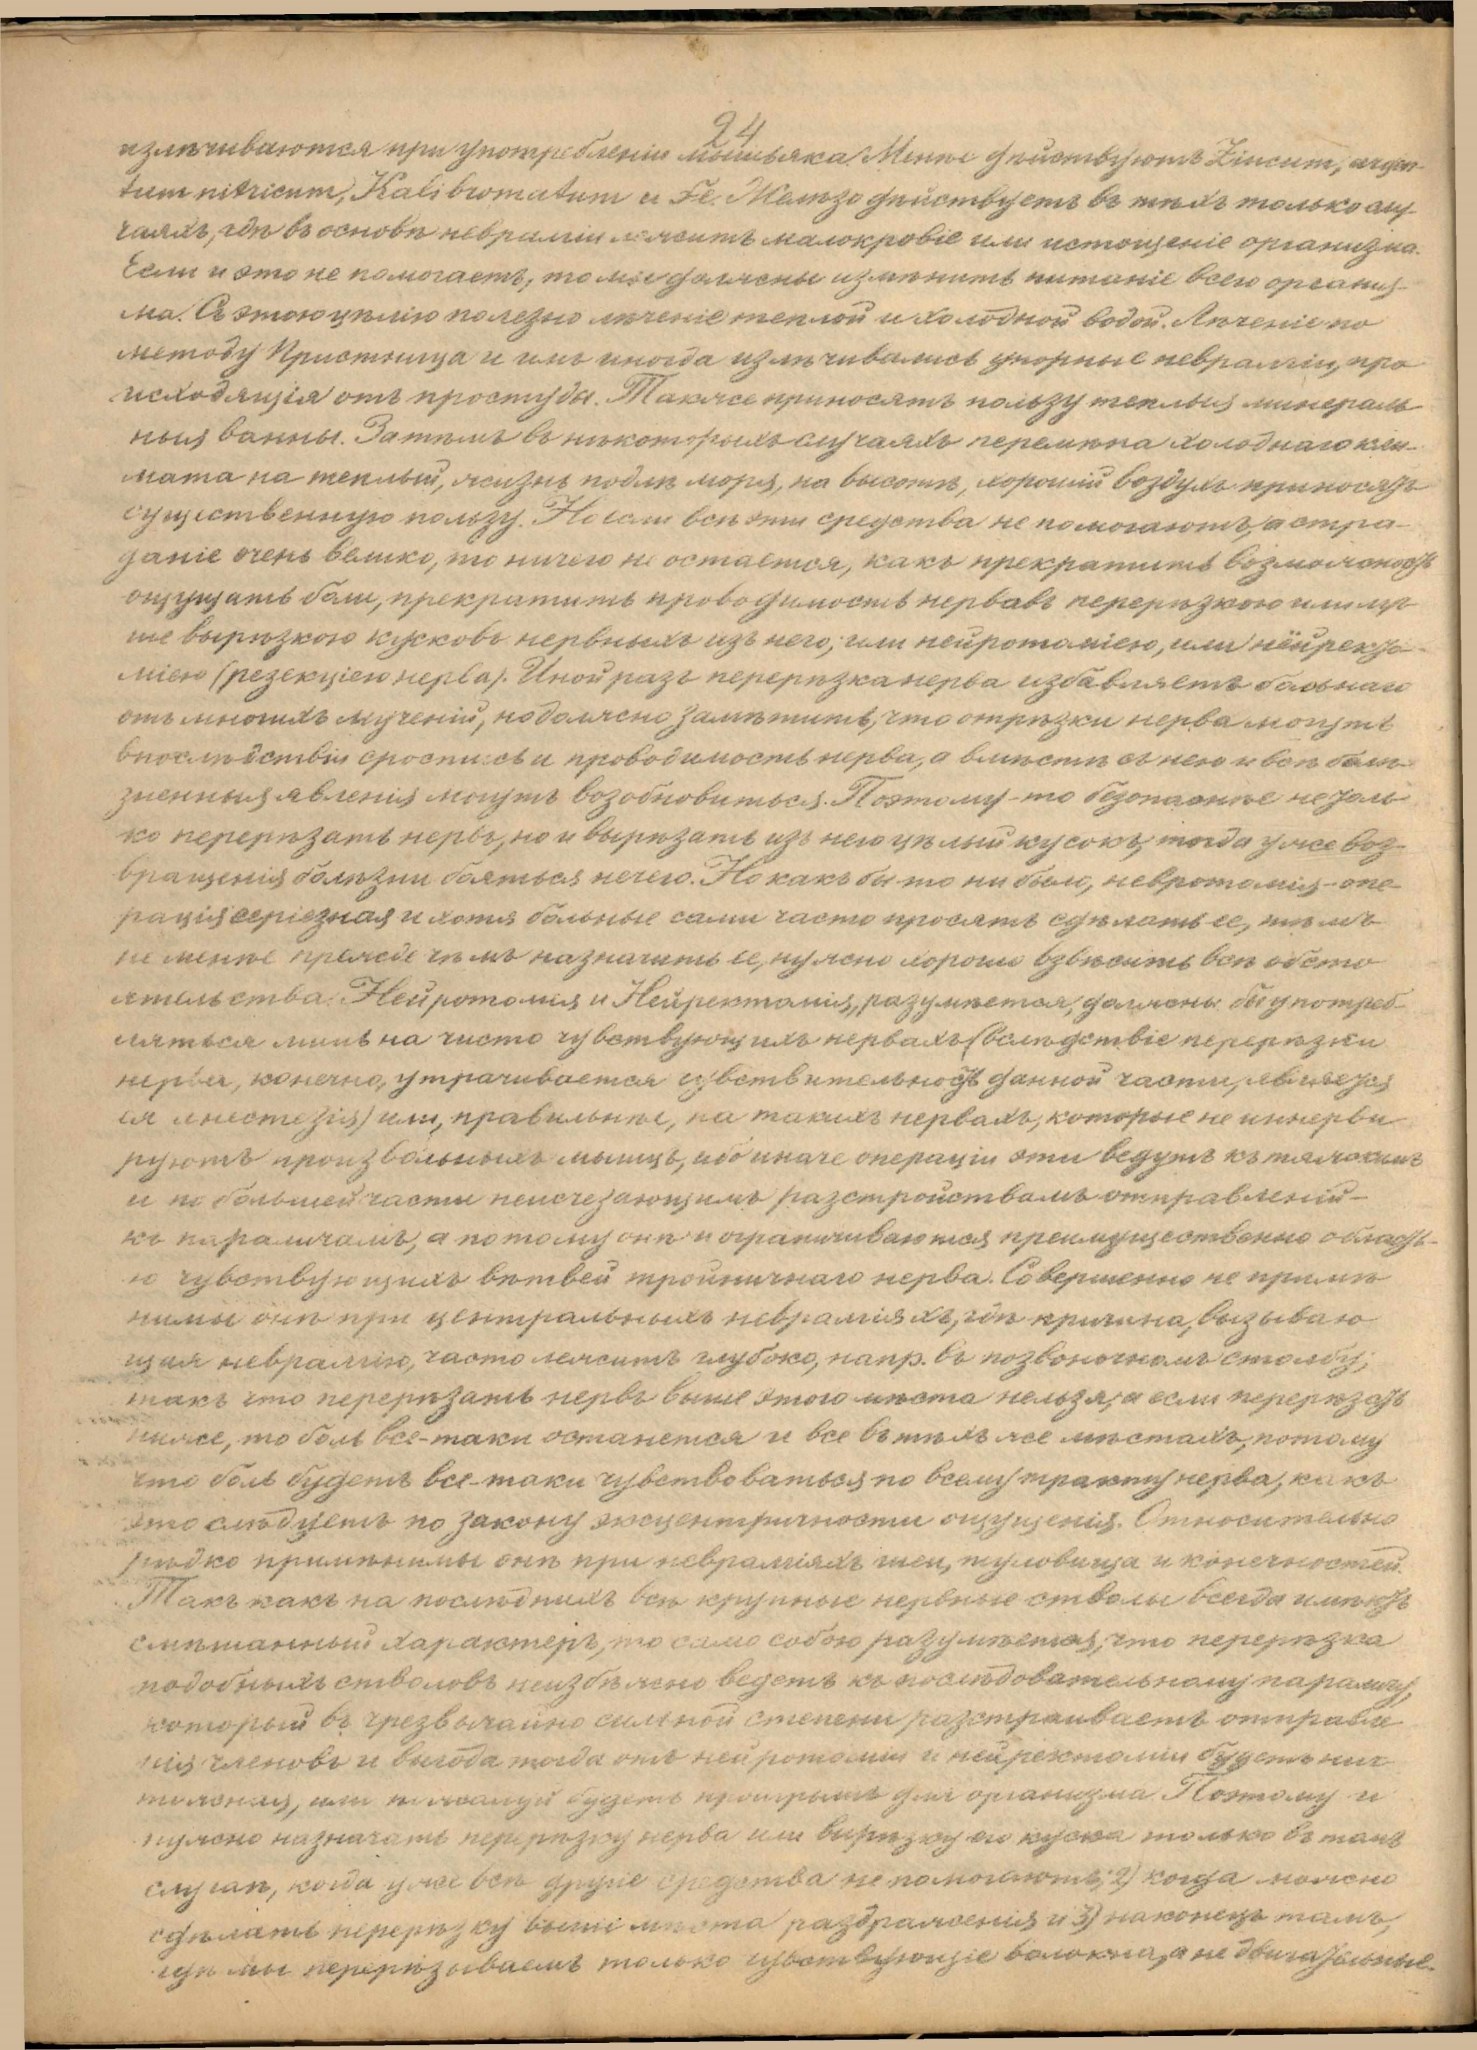 24
излѣчиваются при употребленіи мышьяка. Менѣе дѣйствуютъ Zincum, argen-
tum nitricum, Kali bromatum и Fe. Желѣзо дѣйствуетъ въ тѣхъ только слу-
чаяхъ, гдѣ въ основѣ невралгіи лежитъ малокровіе или истощеніе организма.
Если и это не помогаетъ, то мы должны измѣнить питаніе всего организ-
ма. Съ этою цѣлію полезно лѣченіе теплой и холодной водой. Лѣченіе по
методу Присница и имъ иногда излѣчивались упорные невралгіи, про
исходящія отъ простуды. Также приносятъ пользу теплыя минераль
ныя ванны. Затѣмъ въ нѣкоторыхъ случаяхъ перемѣна холоднаго кли-
мата на теплый, жизнь подлѣ моря, на высотѣ, хорошій воздухъ приносятъ
существенную пользу. Но если всѣ эти средства не помогаютъ, а стра-
даніе очень велико, то ничего не остается, какъ прекратить возможность
ощущать боли, прекратить проводимость нервовъ перерѣзкою или луч
ше вырѣзкою кусковъ нервныхъ изъ него, или нейротоміею, или нейректо-
міею (резекціею нерва). Иной разъ перерѣзка нерва избавляетъ больнаго
отъ многихъ мученій, но должно замѣтить, что отрѣзки нерва могутъ
впослѣдствіи сростись и проводимость нерва, а вмѣстѣ съ нею и всѣ болѣ-
зненныя явленія могутъ возобновиться. Поэтому-то безопаснѣе не толь
ко перерѣзать нервъ, но и вырѣзать изъ него цѣлый кусокъ, тогда уже воз-
вращенія болѣзни бояться нечего. Но какъ бы то ни было, невротомія-опе-
рація серіезная и хотя больные сами часто просятъ сдѣлать ее, тѣмъ
не менѣе прежде чѣмъ назначить ее, нужно хорошо взвѣсить всѣ обсто
ятельства. Нейротомія и Нейректомія, разумѣется, должны бы употреб-
ляться лишь на чисто чувствующихъ нервахъ (вслѣдствіе перерѣзки
нерва, конечно, утрачивается чувствительность данной части, является
ея анестезія) или, правильнѣе, на такихъ нервахъ, которые не иннерви
руютъ произвольныхъ мышцъ, ибо иначе операціи эти ведутъ къ тяжкимъ
и по большей части неисчезающимъ разстройствамъ отправленій-
къ параличамъ, а потому онѣ и ограничиваются преимущественно область-
ю чувствующихъ вѣтвей тройничнаго нерва. Совершенно не примѣ
нимы онѣ при центральныхъ невралгіяхъ, гдѣ причина, вызываю
щая невралгію, часто лежитъ глубоко, напр. въ позвоночномъ столбу;
такъ что перерѣзать нервъ выше этого мѣста нельзя, а если перерѣзать
ниже, то боль все-таки останется и все въ тѣхъ же мѣстахъ, потому
что боль будетъ все-таки чувствоваться по всему тракту нерва, какъ
это слѣдуетъ по закону эксцентричности ощущенія. Относительно
рѣдко примѣнимы онѣ при невралгіяхъ шеи, туловища и конечностей.
Такъ какъ на послѣднихъ всѣ крупные нервные стволы всегда имѣютъ
смѣшанный характеръ, то само собою разумѣется, что перерѣзка
подобныхъ стволовъ неизбѣжно ведетъ къ послѣдовательному параличу,
который въ чрезвычайно сильной степени разстраиваетъ отправле
нія членовъ и выгода тогда отъ нейротоміи и нейректоміи будетъ нич
тожная, или пожалуй будетъ проигрышъ для организма. Поэтому и
нужно назначать перерѣзку нерва или вырѣзку его куска только въ томъ
случаѣ, когда уже всѣ другіе средства не помогаютъ; 2) когда можно
сдѣлать перерѣзку выше мѣста раздраженія и 3) наконецъ тамъ,
гдѣ мы перерѣзываемъ только чувствующіе волокна, а не двигательные.